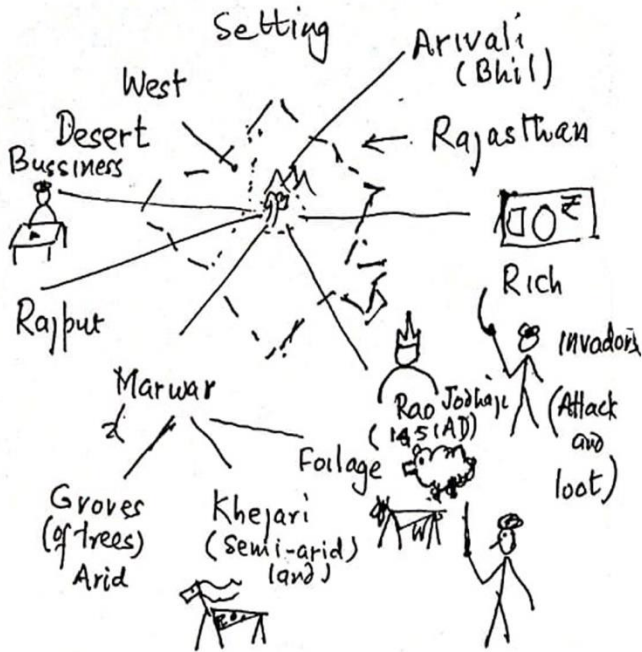 Setting
Arivali
(Bhil)
West
Rajasthan
Desert
Bussiness
₹
Rich
Rajput
Invadors
(Attack
and
loot)
Marwar
Rao Jodhaji
(1451AD)
Foilage
Groves
(of trees)
Arid
Khejari
(Semi-arid)
land)